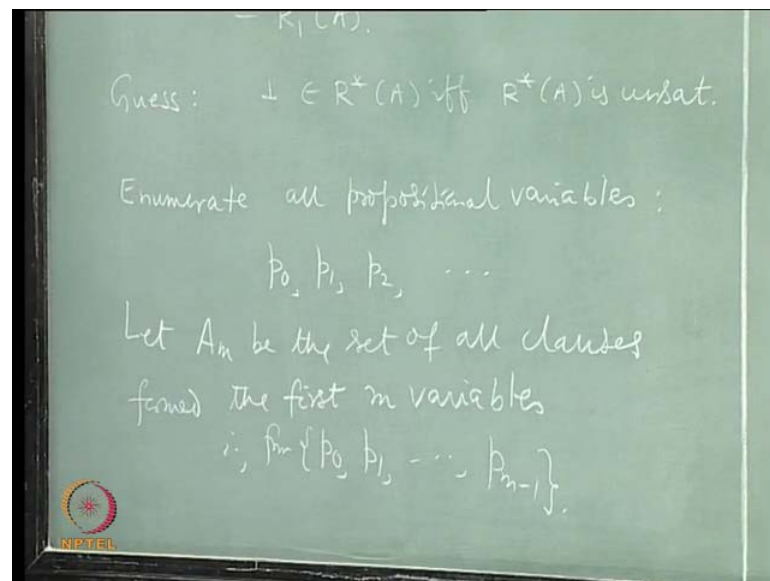 = R₁(A).
Guess: ⊥ ∈ R*(A) iff R*(A) is unsat.
Enumerate all propositional variables :
p₀, p₁, p₂, ...
Let Aₘ be the set of all clauses
formed the first m variables
i.e., from {p₀, p₁, ..., pₘ₋₁}.
NPTEL